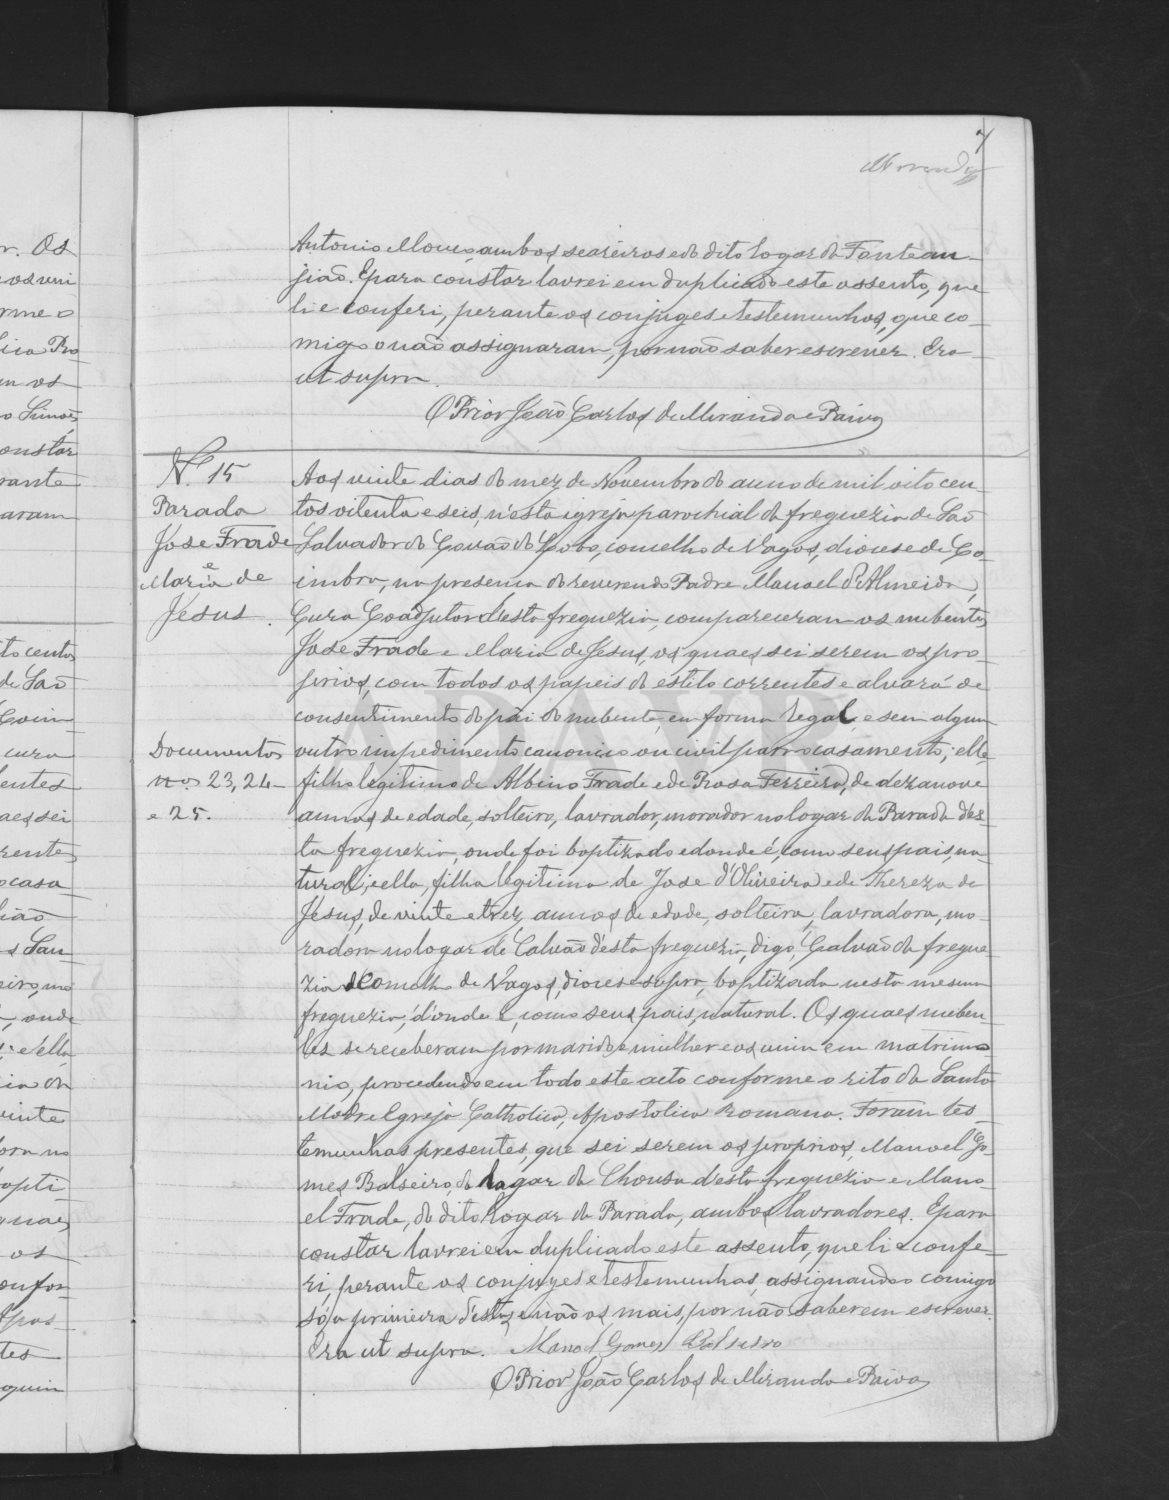 7
Miranda
Antonio Moreço, ambos seareiros e do dito logar da Fonte an-
jião. E para constar lavrei em duplicado este assento, que
li e conferi, perante os conjuges e testemunhas, que co-
migo o não assignaram, por não saber escrever. Era
ut supra.
O Prior João Carlos de Miranda e Paiva
N.º 15
Parada
Jose Frade
e
Maria de
Jesus.
Documentos
nos 23, 24
e 25.
Aos vinte dias do mez de Novembro do anno de mil oito cen-
tos oitenta e seis, n'esta igreja parochial da freguezia de São
Salvador do Covão do Lobo, concelho de Vagos, diocese de Co-
imbra, na presença do reverendo Padre Manoel d'Almeida,
Cura Coadjutor d'esta freguezia, compareceram os nubentes
Jose Frade e Maria de Jesus, os quaes sei serem os pro-
prios, com todos os papeis do estilo correntes e alvará de
consentimento do pai do nubente, em forma legal, e sem algum
outro impedimento canonico ou civil para o casamento; elle
filho legitimo de Albino Frade e de Rosa Ferreira, de dezanove
annos de edade, solteiro, lavrador, morador no logar da Parada d'es-
ta freguezia, onde foi baptizado e donde é, como seus pais, na-
tural; e ella, filha legitima de Jose d'Oliveira e de Thereza de
Jesus, de vinte e trez annos de edade, solteira, lavradora, mo-
radora no logar de Calvão d'esta freguezia, digo, Calvão da fregue-
zia e Concelho de Vagos, diocese supra, baptizada nesta mesma
freguezia, d'onde é, como seus pais, natural. Os quaes nuben-
tes se receberam por marido e mulher e os uni em matrimo-
nio, procedendo em todo este acto conforme o rito da Santa
Madre Egreja Catholica, Apostolica Romana. Foram tes-
temunhas presentes, que sei serem os proprios, Manoel Go-
mes Balseiro, do lagar da Chousa d'esta freguezia e Mano-
el Frade, do dito logar da Parada, ambos lavradores. E para
constar lavrei em duplicado este assento, que li e confe-
ri, perante os conjuges e testemunhas, assignando-o comigo
só a primeira d'estas, e não os mais, por não saberem escrever.
Era ut supra. Manoel Gomes Balseiro
O Prior João Carlos de Miranda e Paiva